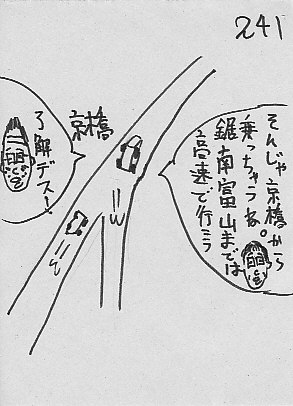 241
そんじゃ京橋から
乗っちゃうね。
鋸南富山までは
高速で行こう
京橋
了解デスー!